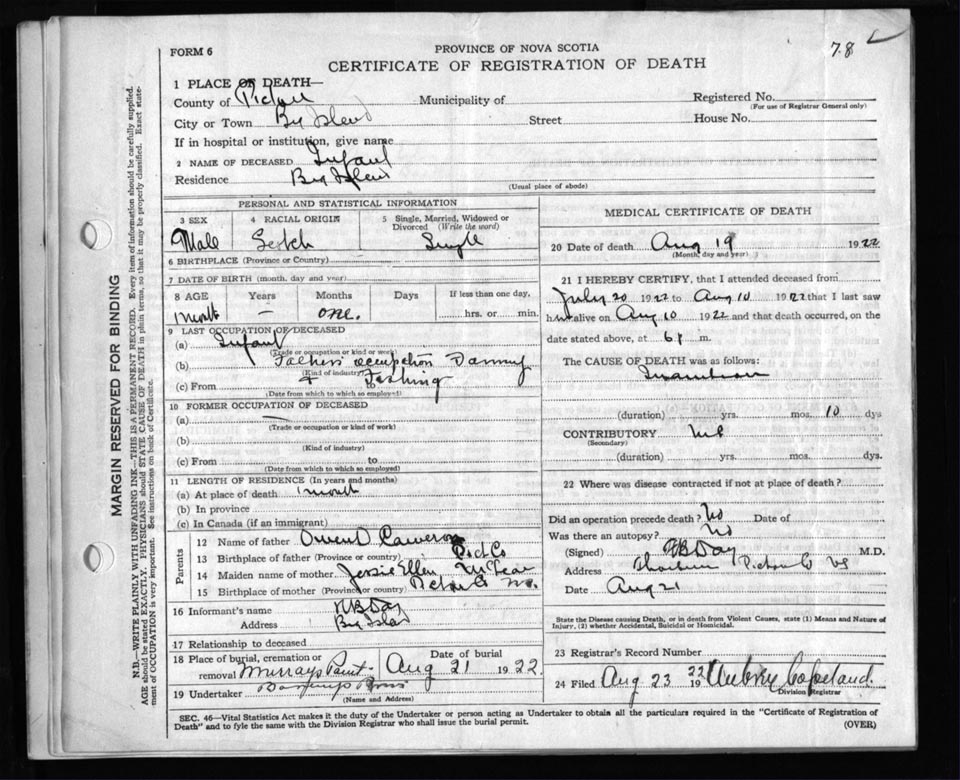 78
FORM 6
PROVINCE OF NOVA SCOTIA
CERTIFICATE OF REGISTRATION OF DEATH
1 PLACE OF DEATH—
County of Pictou Municipality of Registered No.
(For use of Registrar General only)
City or Town Big Island Street House No.
If in hospital or institution, give name
2 NAME OF DECEASED Infant
Residence Big Island
(Usual place of abode)
PERSONAL AND STATISTICAL INFORMATION
3 SEX 4 RACIAL ORIGIN 5 Single, Married, Widowed or
Divorced (Write the word)
Male Scotch Single
6 BIRTHPLACE (Province or Country)
7 DATE OF BIRTH (month, day and year)
8 AGE Years Months Days If less than one day,
month – one. hrs. or min.
9 LAST OCCUPATION OF DECEASED
(a) Infant
(Trade or occupation or kind of work)
(b) Fathers occupation Farming
(Kind of industry)
(c) From & to Fishing
(Date from which to which so employed)
10 FORMER OCCUPATION OF DECEASED
(a)
(Trade or occupation or kind of work)
(b)
(Kind of industry)
(c) From to
(Date from which to which so employed)
11 LENGTH OF RESIDENCE (In years and months)
(a) At place of death 1 month
(b) In province
(c) In Canada (if an immigrant)
Parents
12 Name of father Owen D Cameron
13 Birthplace of father (Province or country) Pict Co
14 Maiden name of mother Jessie Ellen McLean
15 Birthplace of mother (Province or country) Pictou Co
16 Informant's name
Address Big Island
17 Relationship to deceased
18 Place of burial, cremation or Date of burial
removal Murrays Point Aug 21 1922
19 Undertaker
(Name and Address)
MEDICAL CERTIFICATE OF DEATH
20 Date of death Aug 19 1922
(Month, day and year)
21 I HEREBY CERTIFY, that I attended deceased from
July 20 1922 to Aug 10 1922 that I last saw
him alive on Aug 10 1922 and that death occurred, on the
date stated above, at 6 m.
The CAUSE OF DEATH was as follows:
Inanition
(duration) yrs. mos. 10 dys
CONTRIBUTORY
(Secondary)
(duration) yrs. mos. dys.
22 Where was disease contracted if not at place of death?
Did an operation precede death? No Date of
Was there an autopsy? No
(Signed) Day M.D.
Address Thorburn Pictou Co NS
Date Aug 21
State the Disease causing Death, or in death from Violent Causes, state (1) Means and Nature of
Injury, (2) whether Accidental, Suicidal or Homicidal.
23 Registrar's Record Number
24 Filed Aug 23 1922 Aubrey Copeland.
Division Registrar
SEC. 46—Vital Statistics Act makes it the duty of the Undertaker or person acting as Undertaker to obtain all the particulars required in the "Certificate of Registration of
Death" and to fyle the same with the Division Registrar who shall issue the burial permit.
(OVER)
MARGIN RESERVED FOR BINDING
N.B.—WRITE PLAINLY WITH UNFADING INK—THIS IS A PERMANENT RECORD. Every item of information should be carefully supplied.
AGE should be stated EXACTLY. PHYSICIANS should STATE CAUSE OF DEATH in plain terms, so that it may be properly classified. Exact state-
ment of OCCUPATION is very important. See instructions on back of Certificate.